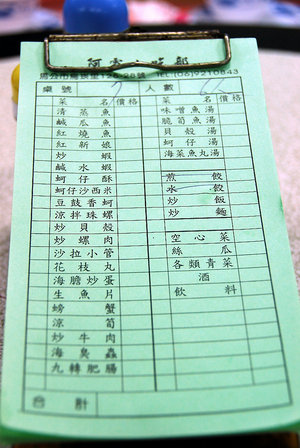 馬公市烏崁里126-26號 TEL(06)9210843
桌號 人數
菜名 價格
清蒸魚
鹹瓜魚
紅燒魚
紅新娘
炒蝦
鹹水蝦
蚵仔酥
蚵仔沙西米
豆鼓香蚵
涼拌珠螺
炒貝殼
炒螺肉
沙拉小管
花枝丸
海膽炒蛋
生魚片
螃蟹
涼筍
炒牛肉
海臭蟲
九轉肥腸
菜名 價格
味噌魚湯
脆筍魚湯
貝殼湯
蚵仔湯
海菜魚丸湯
煎餃
水餃
炒飯
炒麵
空心菜
絲瓜
各類青菜
酒
飲料
合計